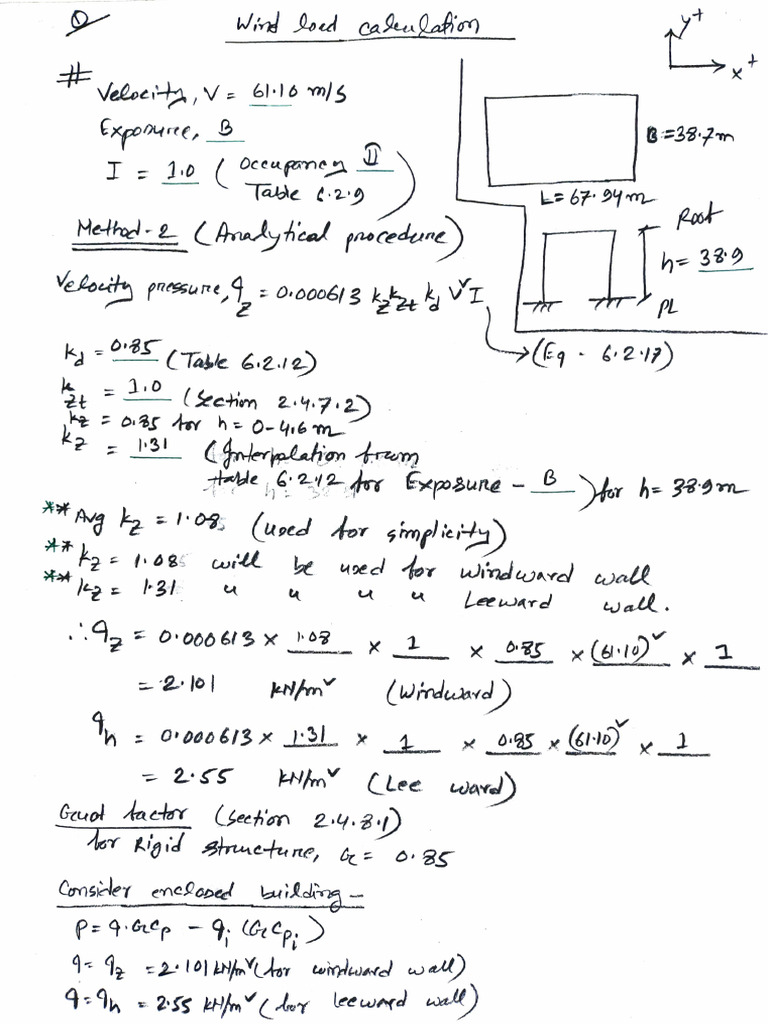 Wind load calculation
y+
x+
# Velocity, V = 61.10 m/s
Exposure, B
I = 1.0 (Occupancy II
Table 6.2.9)
B=38.7m
L=67.94m
Roof
h= 38.9
PL
Method-2 (Analytical procedure)
Velocity pressure, qz = 0.000613 kz kzt kd V² I
(Eq - 6.2.17)
kd = 0.85 (Table 6.2.12)
kzt = 1.0 (Section 2.4.7.2)
kz = 0.85 for h = 0-4.6m
kz = 1.31 (Interpolation from
table 6.2.12 for Exposure - B) for h= 38.9m
** Avg kz = 1.08 (used for simplicity)
** kz = 1.08 will be used for windward wall
** kz = 1.31 " " " " Leeward wall.
∴ qz = 0.000613 × 1.08 × 1 × 0.85 × (61.10)² × 1
= 2.101 kN/m² (Windward)
qh = 0.000613 × 1.31 × 1 × 0.85 × (61.10)² × 1
= 2.55 kN/m² (Lee ward)
Gust factor (Section 2.4.8.1)
for Rigid structure, G = 0.85
Consider enclosed building -
P = q.GCp - qi (GCpi)
q = qz = 2.101 kN/m² (for windward wall)
q = qh = 2.55 kN/m² (for leeward wall)